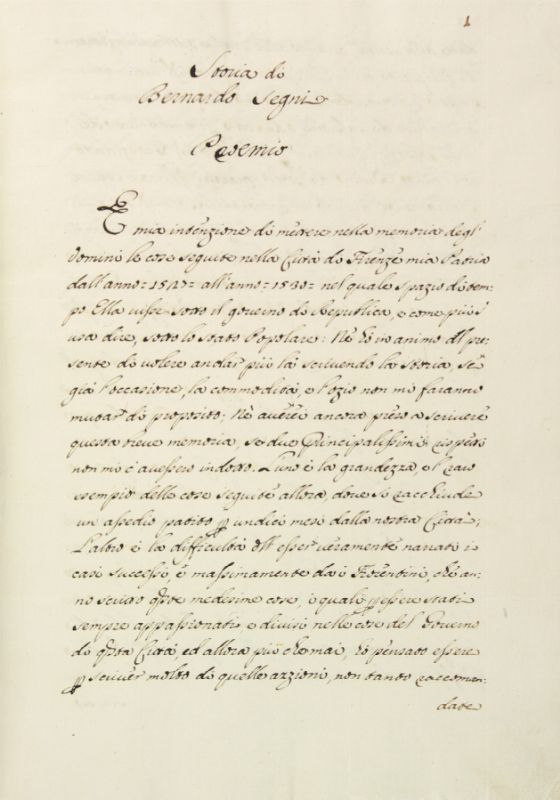 1
Storia di
Bernardo Segni
Proemio
E mia intenzione di mettere nella memoria degl'
Uomini le cose seguite nella Città di Firenze mia Patria
dall'anno = 1527 = all'anno = 1530 = nel quale spazio di tem-
po Ella visse sotto il governo di Republica, e come più s'
usa dire, sotto lo stato Popolare: Nè hò in animo al pre-
sente di volere andar più là scrivendo la storia, se
già l'occasione, la commodità, e l'ozio non mi faranno
mutar di proposito; Nè averei ancora preso a scrivere
questa breve memoria, se due principalissimi rispetti
non mi c'avessero indotto. L'uno è la grandezza, e'l raro
esempio delle cose seguite allora, dove si racchiude
un assedio patito p undici mesi dalla nostra Città;
L'altro è la difficultà dell'esser veramente narrati i
casi successi, e massimamente dai Fiorentini, che an-
no scritto qste medesime cose, i quali p essere stati
sempre appassionati, e divisi nelle cose del Governo
di qsta Città, ed allora più che mai, hò pensato essere
p scriver molto di quelle azzioni, non tanto raccoman-
date